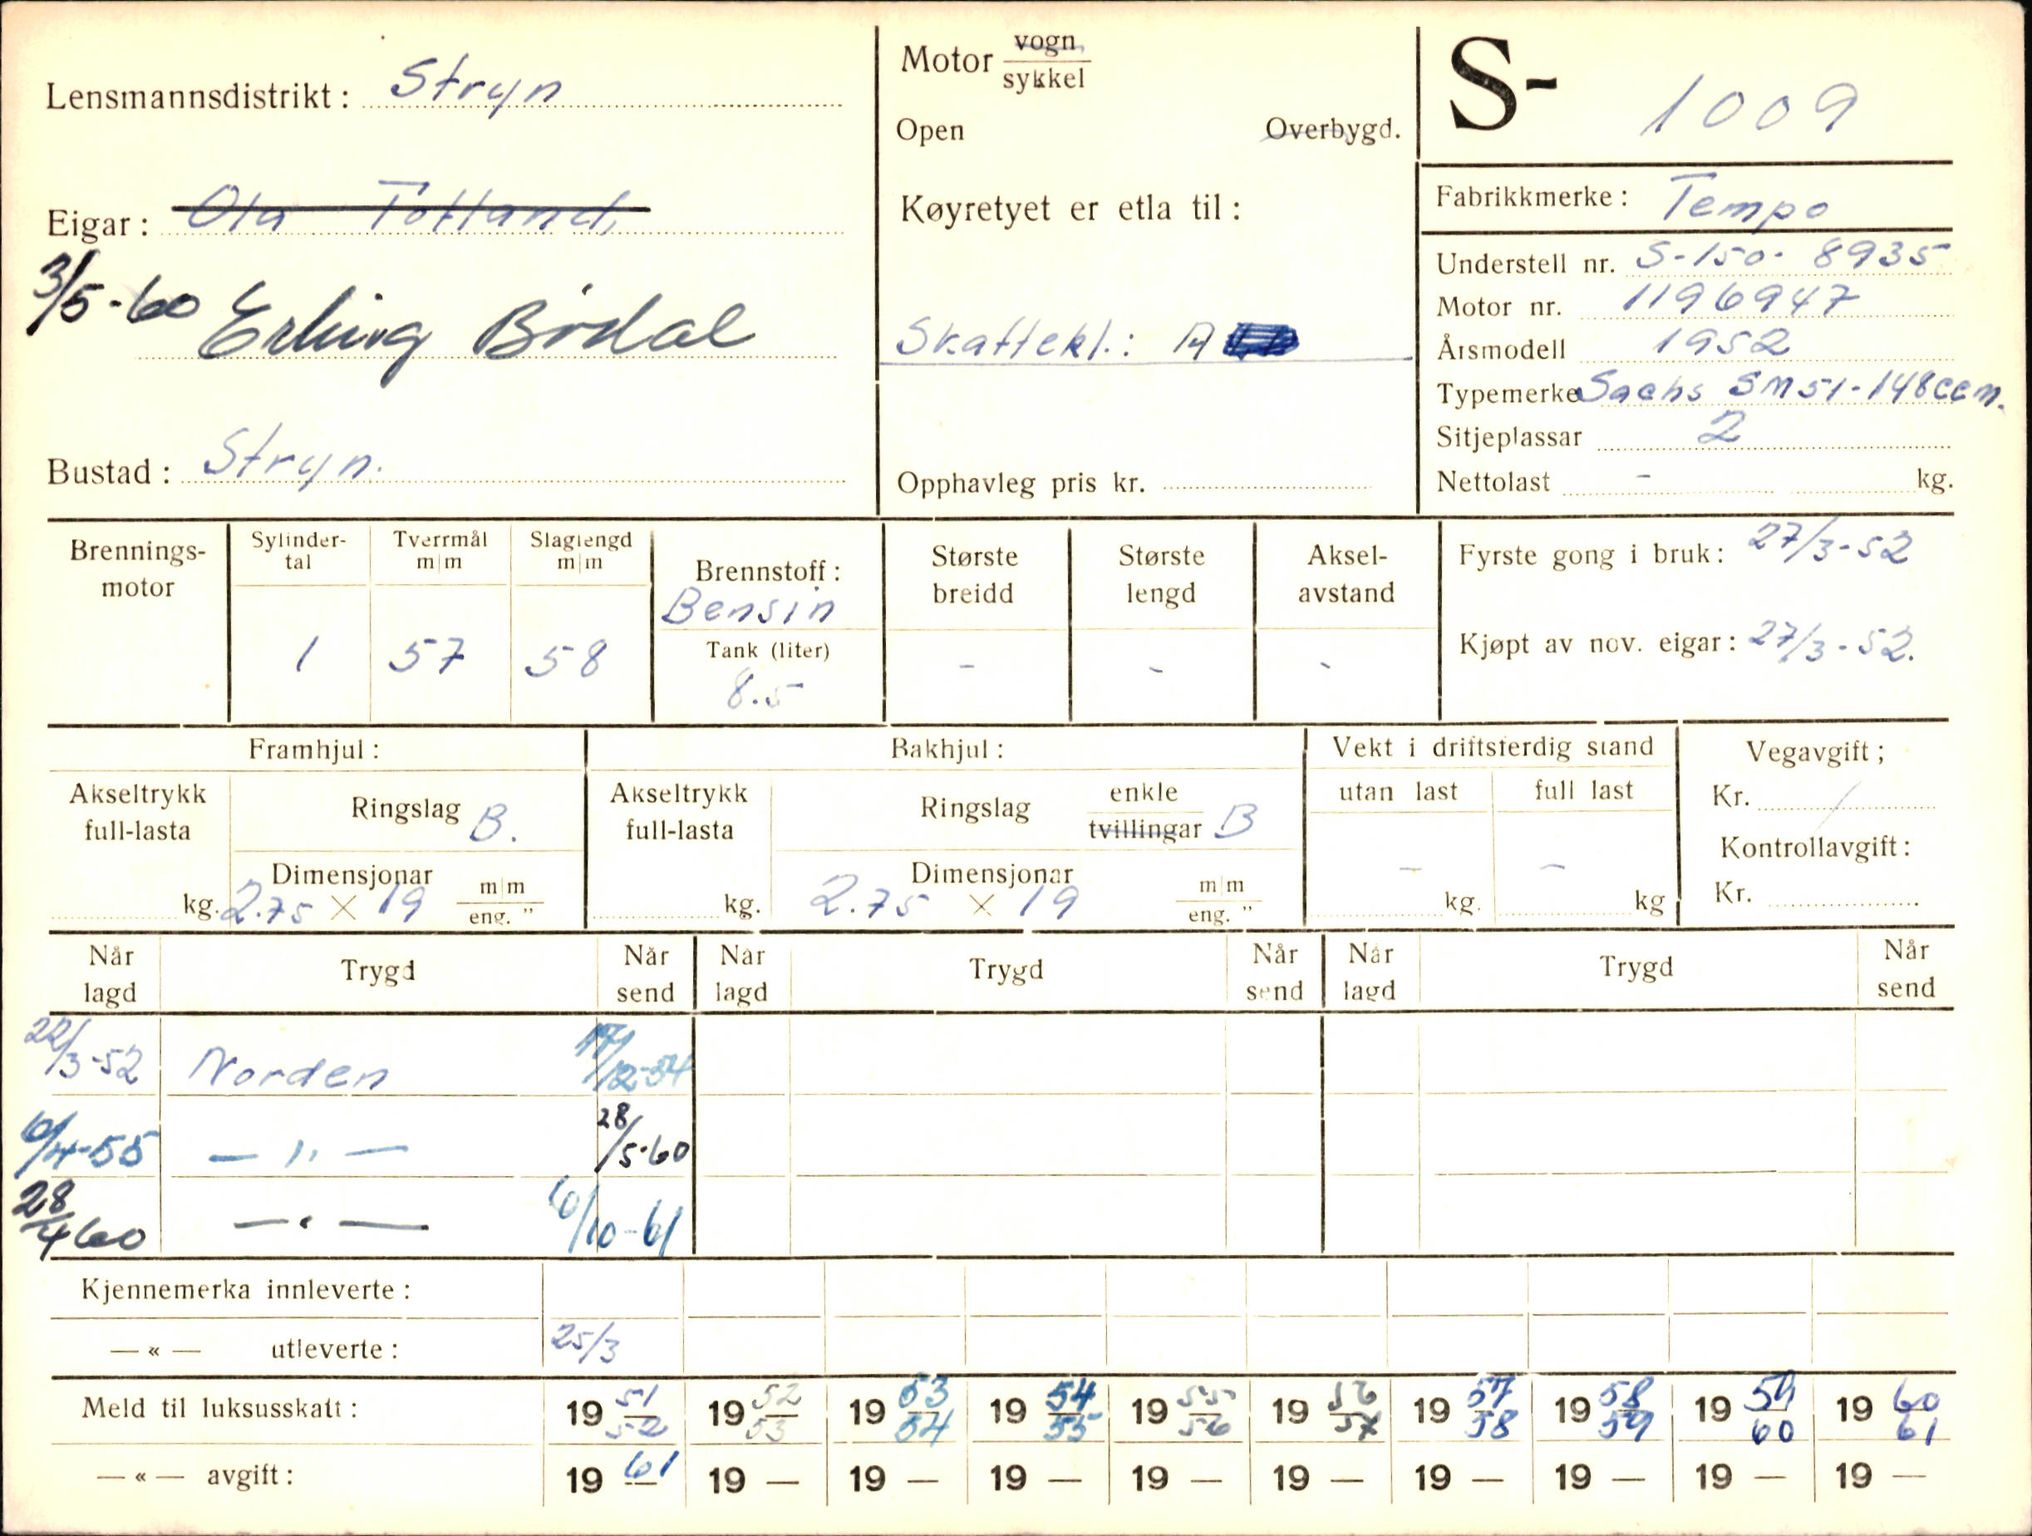 Lensmannsdistrikt: Stryn
Eigar: Ola Totland,
3/5-60 Erling Bødal
Bustad: Stryn.
Motor vogn/sykkel
Open Overbygd.
Køyretyet er etla til:
Skattekl.: A
Opphavleg pris kr.
S- 1009
Fabrikkmerke: Tempo
Understell nr. S-150-8935
Motor nr. 1196947
Årsmodell 1952
Typemerke Sachs SM51-148ccm.
Sitjeplassar 2
Nettolast - kg.
Brennings-
motor
Sylinder-
tal
1
Tverrmål
m|m
57
Slaglengd
m|m
58
Brennstoff:
Bensin
Tank (liter)
8.5
Største
breidd
-
Største
lengd
-
Aksel-
avstand
-
Fyrste gong i bruk: 27/3-52
Kjøpt av nov. eigar: 27/3-52.
Framhjul:
Akseltrykk
full-lasta
kg.
Ringslag B.
Dimensjonar
2.75 x 19 m|m
eng. "
Bakhjul:
Akseltrykk
full-lasta
kg.
Ringslag enkle/tvillingar B
Dimensjonar
2.75 x 19 m|m
eng. "
Vekt i driftsferdig stand
utan last full last
- -
kg. kg
Vegavgift;
Kr. /
Kontrollavgift:
Kr.
Når
lagd Trygd Når
send Når
lagd Trygd Når
send Når
lagd Trygd Når
send
22/3-52 Norden 17/12-54
6/4-55 — " — 28/5-60
28/4 60 — " — 6/10-61
Kjennemerka innleverte:
— « — utleverte: 25/3
Meld til luksusskatt: 19 51/52 19 52/53 19 53/54 19 54/55 19 55/56 19 56/57 19 57/58 19 58/59 19 59/60 19 60/61
— « — avgift: 19 61 19 — 19 — 19 — 19 — 19 — 19 — 19 — 19 — 19 —